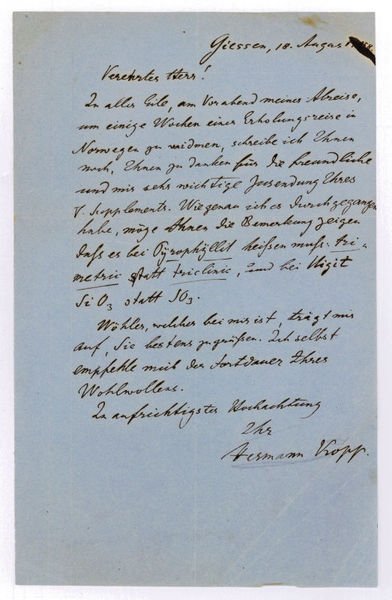 Giessen, 18. August
Verehrter Herr!
In aller Eile, am Vorabend meiner Abreise,
um einige Wochen einer Erholungsreise in
Norwegen zu widmen, schreibe ich Ihnen
noch, Ihnen zu danken für die freundliche
und mir sehr wichtige Zusendung Ihres
V. Supplements. Wie genau ich es durchgegangen
habe, möge Ihnen die Bemerkung zeigen
daß es bei Pyrophyllit heißen muß: tri-
metric statt triclinic, und bei
Si O3 statt SO3.
Wöhler, welcher bei mir ist trägt mir
auf, Sie bestens zu grüßen. Ich selbst
empfehle mich der Fortdauer Ihres
Wohlwollens.
In aufrichtigster Hochachtung
Ihr
Hermann Kopp.